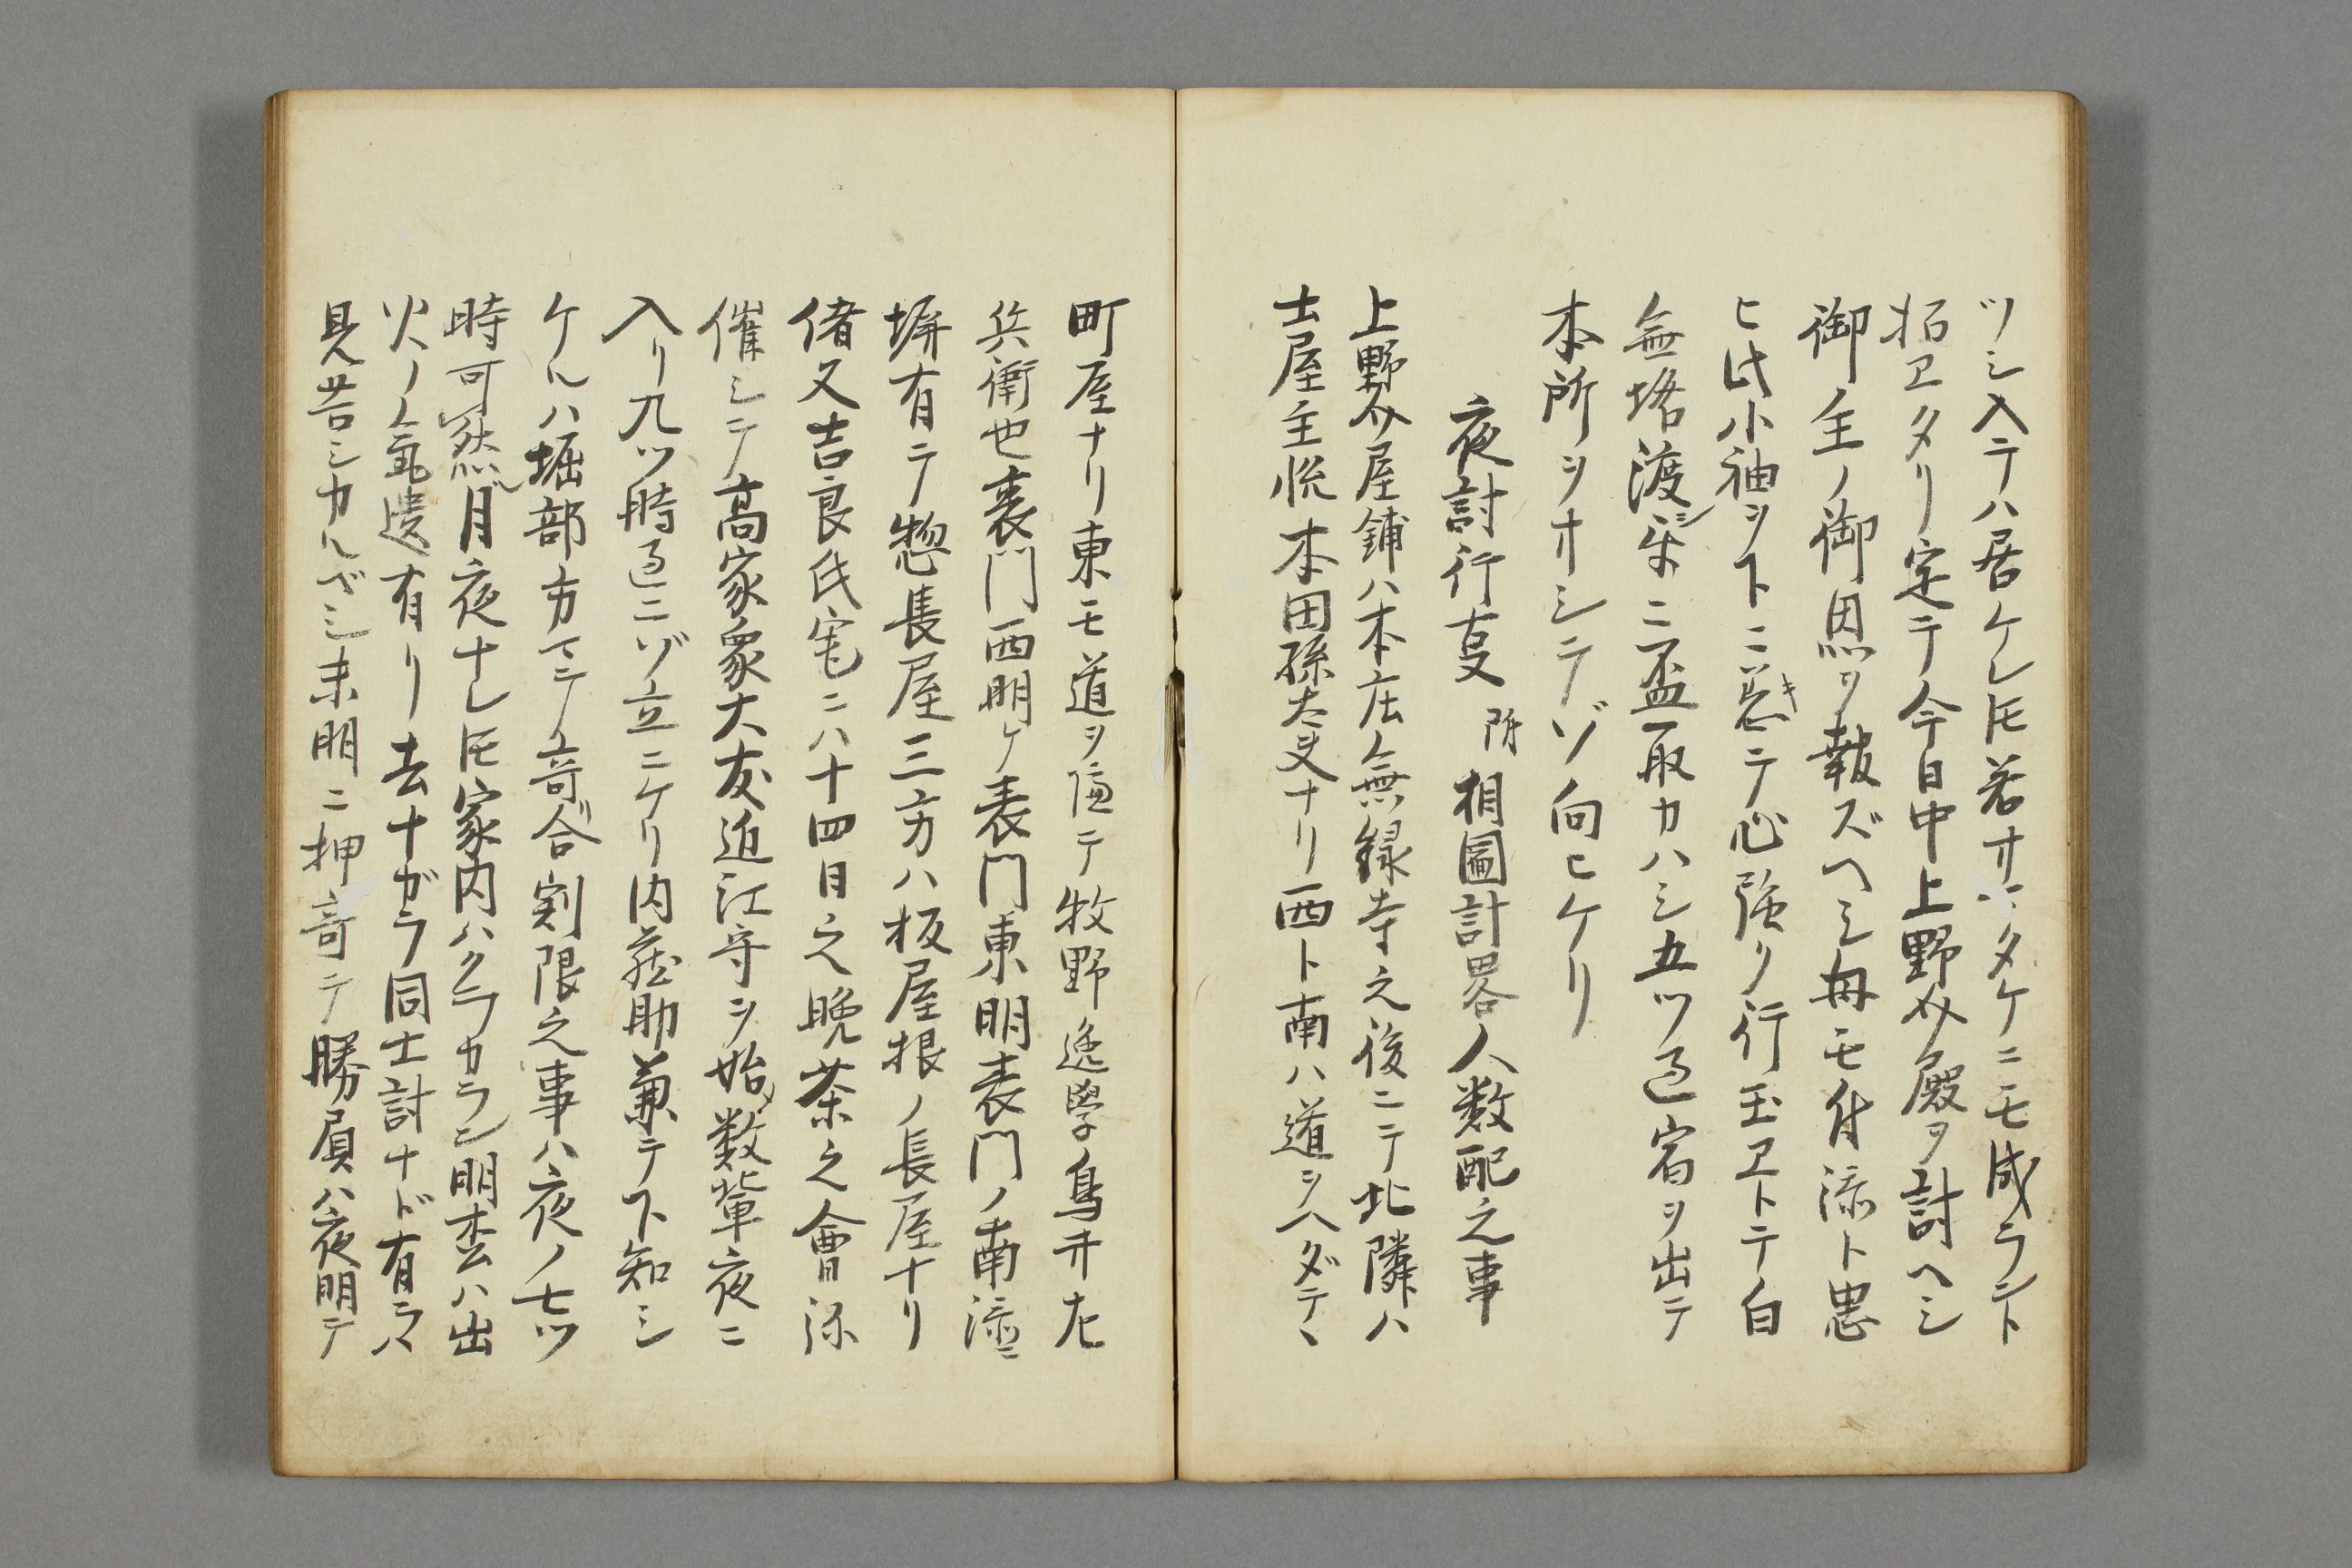 ツシ入テハ居ケレ𪜈若オサタケニモ成ラント
拓ヱタリ定テ今日中上野介殿ヲ討ヘシ
御主ノ御恩ヲ報ズヘシ毋モ付添ト思
ヒ氏小袖ヲ下ニ忍キテ心強ク行玉ヱトテ白
無垢渡シ
ニ盃取カハシ五ツ過宿ヲ出テ
本所ヲオシテゾ向ヒケリ
夜討行㕝 附 相圖計畧人数配之事
上野介屋鋪ハ本庄無縁寺之後ニテ北隣ハ
土屋主悦本田孫太夫ナリ西ト南ハ道ヲヘダテヽ
町屋ナリ東モ道ヲ
テ牧野逸學鳥井九
兵衛也裏門西明ケ表門東明表門ノ南添ニ
塀有テ惣長屋三方ハ板屋根ノ長屋ナリ
偖又吉良氏宅ニハ十四日之晩茶之會
催シテ高家衆大友近江守ヲ始メ数輩夜ニ
入リ九ツ時過ニゾ立ニケリ内蔵助兼テ下知シ
ケルハ堀部方ニテノ竒合割限之事ハ夜ノ七ツ
時可然月夜ナレ𪜈家内ハクラカラン明松ハ出
火ノ氣遣有リ去ナガラ同士討ナド有ラハ
見苦シカルベシ未明ニ押竒テ勝屓ハ夜明テ